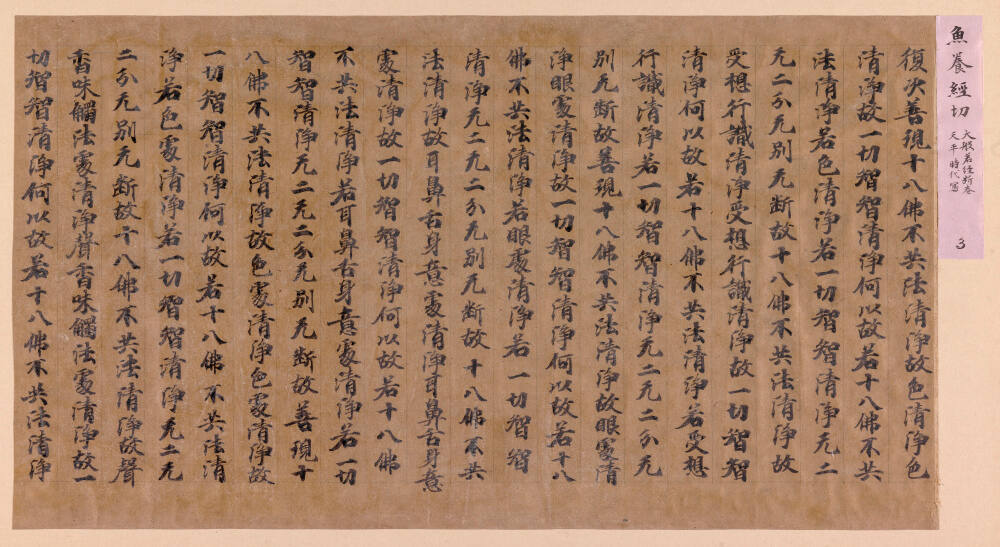 魚養經切
大般若経断巻
天平時代寫
3
復次善現十八佛不共法清淨故色清淨色
清淨故一切智智清淨何以故若十八佛不共
法清淨若色清淨若一切智智清淨无二
无二分无別无断故十八佛不共法清淨故
受想行識清淨受想行識清淨故一切智智
清淨何以故若十八佛不共法清淨若受想
行識清淨若一切智智清淨无二无二分无
別无断故善現十八佛不共法清淨故眼處清
淨眼處清淨故一切智智清淨何以故若十八
佛不共法清淨若眼處清淨若一切智智
清淨无二无二分无別无断故十八佛不共
法清淨故耳鼻舌身意處清淨耳鼻舌身意
處清淨故一切智智清淨何以故若十八佛
不共法清淨若耳鼻舌身意處清淨若一切
智智清淨无二无二分无別无断故善現十
八佛不共法清淨故色處清淨色處清淨故
一切智智清淨何以故若十八佛不共法清
淨若色處清淨若一切智智清淨无二无
二分无別无断故十八佛不共法清淨故聲
香味觸法處清淨聲香味觸法處清淨故一
切智智清淨何以故若十八佛不共法清淨